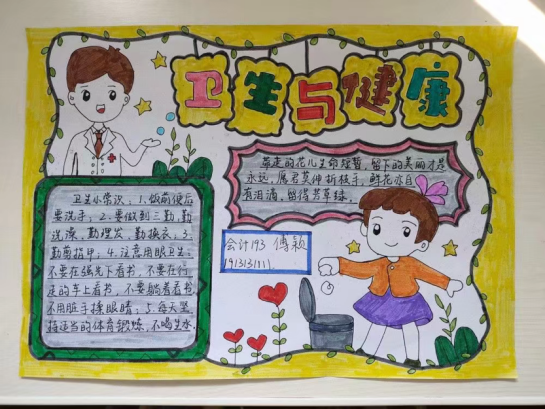 卫生与健康
摘走的花儿生命短暂,留下的美丽才是
永远,愿君莫伸折枝手,鲜花亦自
有泪滴,留得芳草绿。
卫生小常识:1.饭前便后
要洗手,2.要做到三勤,勤
洗澡,勤理发,勤换衣;3.
勤剪指甲;4.注意用眼卫生:
不要在强光下看书,不要在行
走的车上看书,不要躺着看书
不用脏手揉眼睛;5.每天坚
持适当的体育锻炼,不喝生水
会计193 傅颖